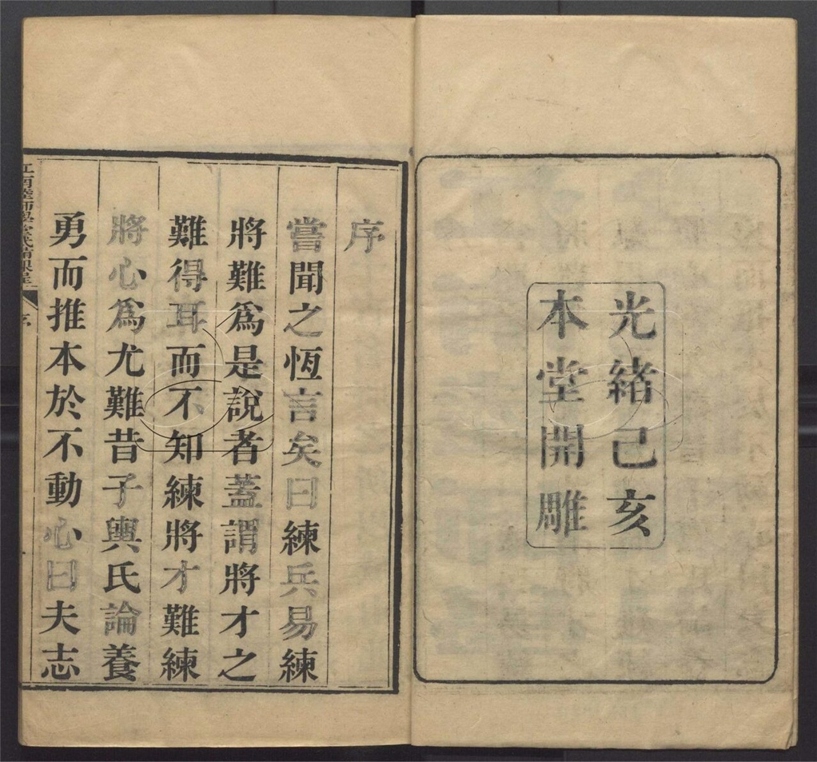 光緒己亥
本堂開雕
序
嘗聞之恆言矣曰練兵易練
將難爲是說者蓋謂將才之
難得耳而不知練將才難練
將心爲尤難昔子輿氏論養
勇而推本於不動心曰夫志